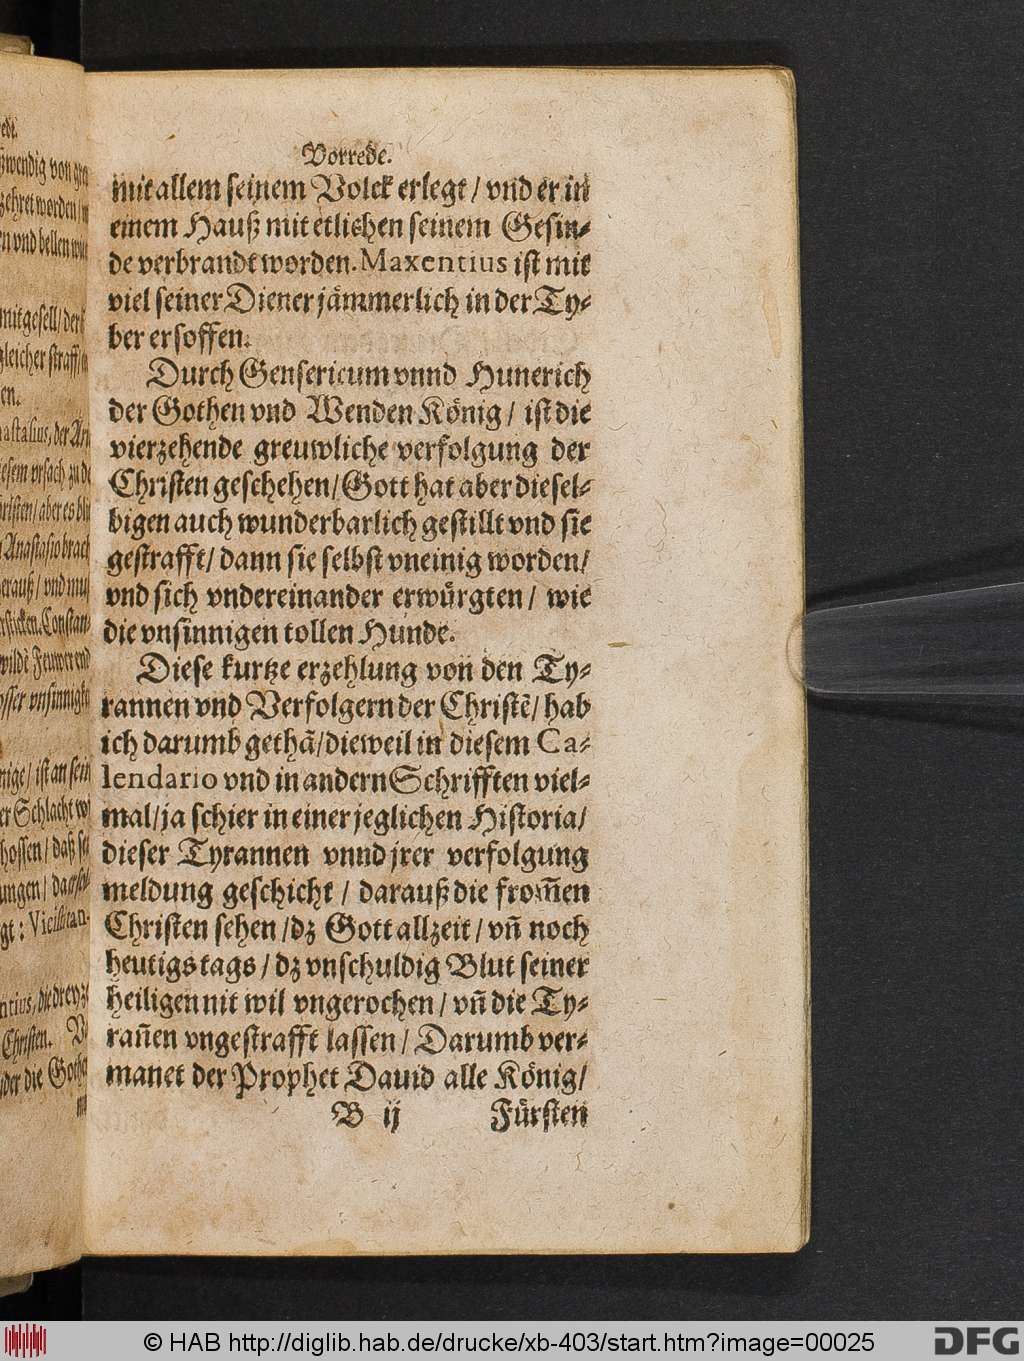 Vorrede.
mit allem seinem Volck erlegt / vnd er in
einem Hauß mit etlichen seinem Gesin-
de verbrandt worden. Maxentius ist mit
viel seiner Diener jämmerlich in der Ty-
ber ersoffen.
Durch Gensericum vnnd Hunerich
der Gothen vnd Wenden König / ist die
vierzehende greuwliche verfolgung der
Christen geschehen / Gott hat aber diesel-
bigen auch wunderbarlich gestillt vnd sie
gestrafft / dann sie selbst vneinig worden /
vnd sich vndereinander erwürgten / wie
die vnsinnigen tollen Hunde.
Diese kurtze erzehlung von den Ty-
rannen vnd Verfolgern der Christẽ / hab
ich darumb gethã / dieweil in diesem Ca-
lendario vnd in andern Schrifften viel-
mal / ja schier in einer jeglichen Historia /
dieser Tyrannen vnnd jrer verfolgung
meldung geschicht / darauß die from̃en
Christen sehen / dz Gott allzeit / vñ noch
heutigs tags / dz vnschuldig Blut seiner
heiligen nit wil vngerochen / vñ die Ty-
rañen vngestrafft lassen / Darumb ver-
manet der Prophet Dauid alle König /
B ij Fürsten
© HAB http://diglib.hab.de/drucke/xb-403/start.htm?image=00025
DFG